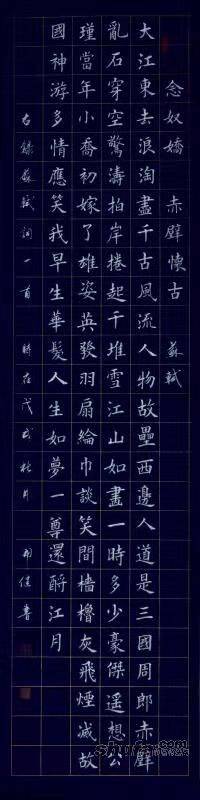 念奴嬌 赤壁懷古 蘇軾
大江東去浪淘盡千古風流人物故壘西邊人道是三國周郎赤壁
亂石穿空驚濤拍岸捲起千堆雪江山如畫一時多少豪傑遙想公
瑾當年小喬初嫁了雄姿英發羽扇綸巾談笑間檣櫓灰飛煙滅故
國神游多情應笑我早生華髮人生如夢一尊還酹江月
右錄蘇軾詞一首 時在戊戌 月 書